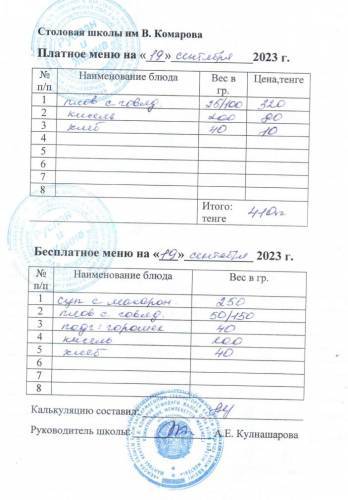 Столовая школы им В. Комарова
Платное меню на «19» сентября 2023 г.
№ п/п Наименование блюда Вес в гр. Цена,тенге
1 плов с говяд. 320
2 кисель 200 80
3 хлеб 40 10
4
5
6
7
8
Итого: тенге 410тг
Бесплатное меню на «19» сентября 2023 г.
№ п/п Наименование блюда Вес в гр.
1 суп с макарон. 250
2 плов с говяд. 50/150
3 подг: горошек 40
4 кисель 200
5 хлеб 40
6
7
8
Калькуляцию составил:
Руководитель школы: А.Е. Кулнашарова